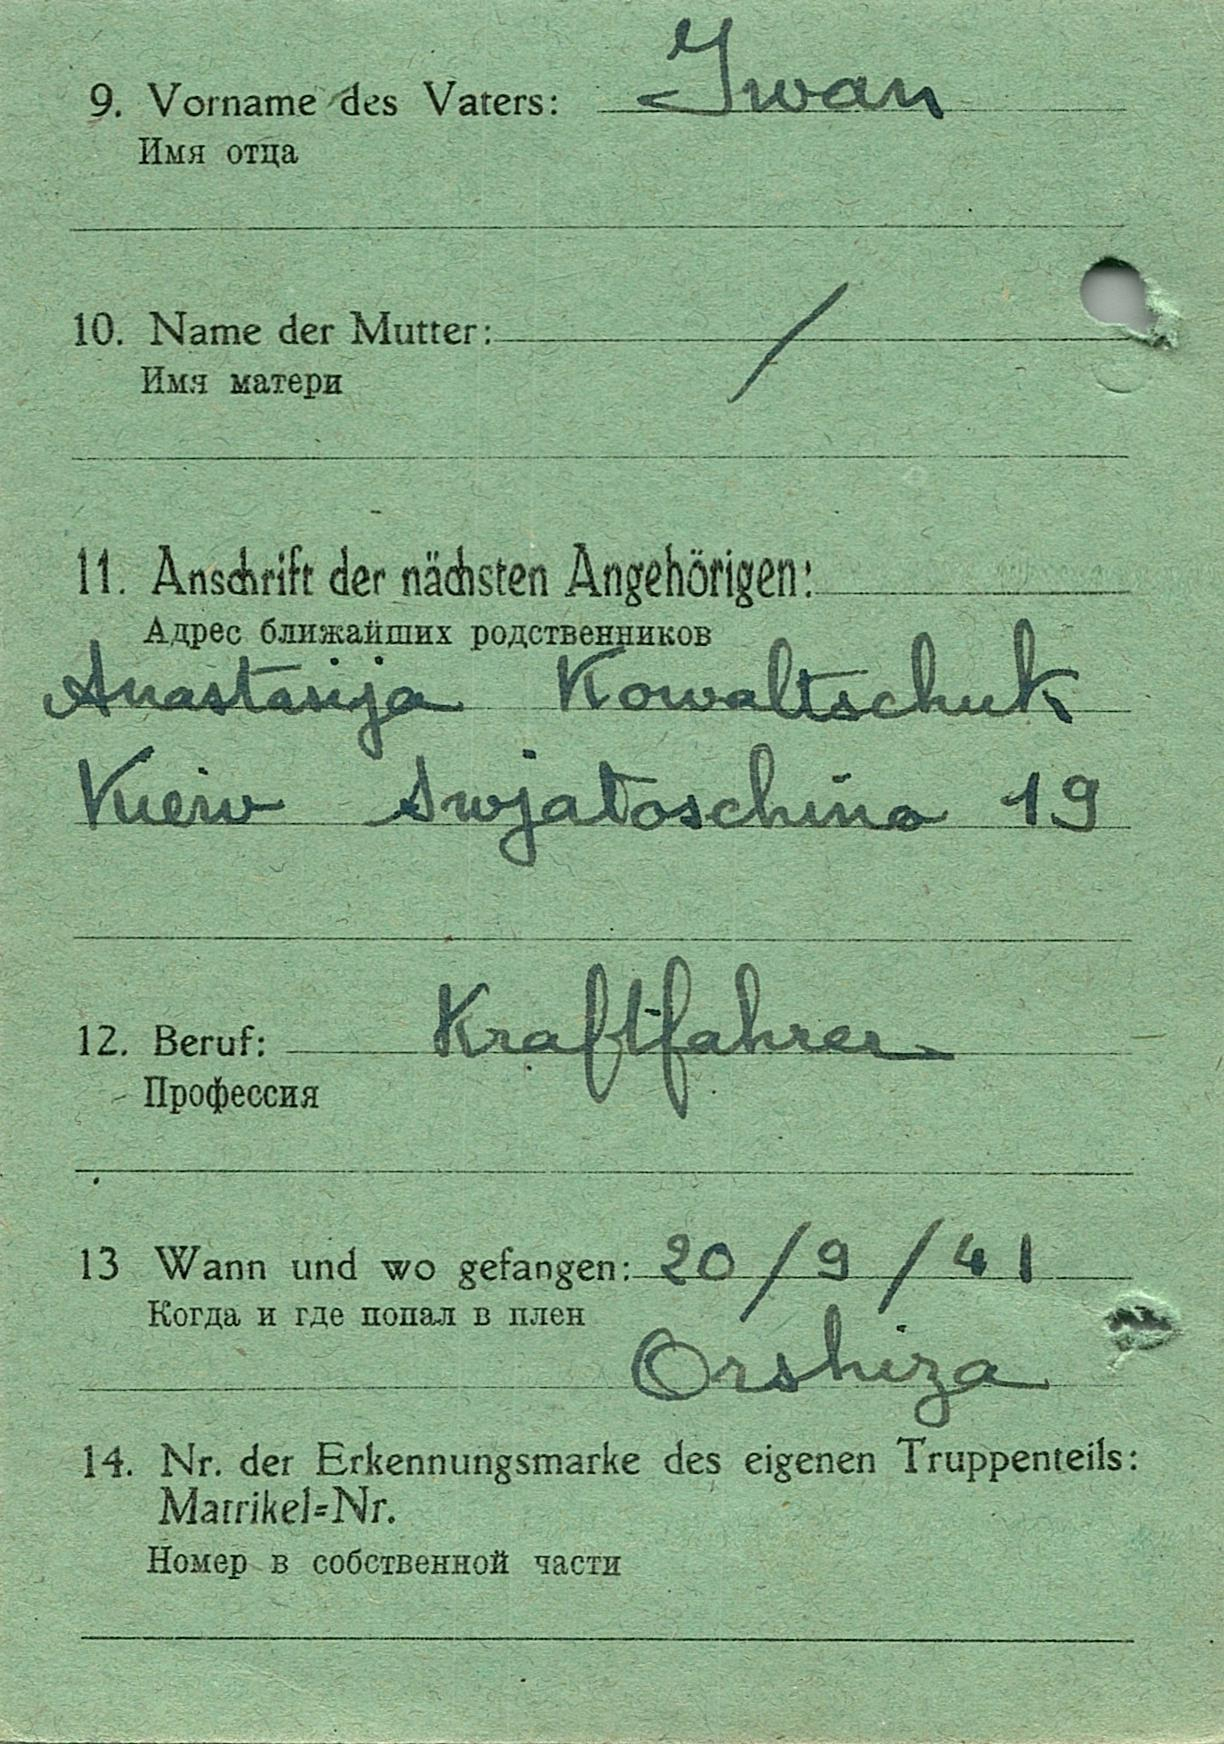 9. Vorname des Vaters: Iwan
Имя отца
10. Name der Mutter: /
Имя матери
11. Anschrift der nächsten Angehörigen:
Адрес ближайших родственников
Anastasija Kowaltschuk
Kiew Swjatoschino 19
12. Beruf: Kraftfahrer
Профессия
13 Wann und wo gefangen: 20/9/41
Когда и где попал в плен
Orshiza
14. Nr. der Erkennungsmarke des eigenen Truppenteils:
Matrikel=Nr.
Номер в собственной части